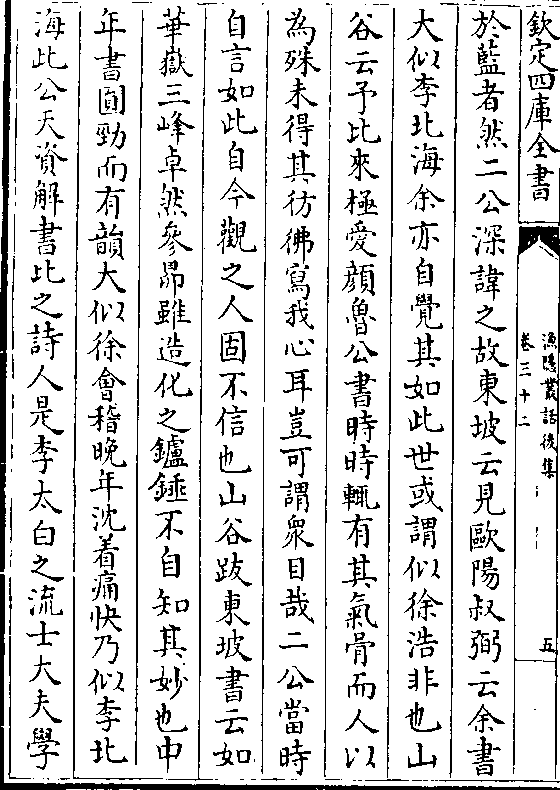 欽定四庫全書
漁隱叢話後集
卷三十二
五
於藍者然二公深諱之故東坡云見歐陽叔弼云余書
大似李北海余亦自覺其如此世或謂似徐浩非也山
谷云予比來極愛顔魯公書時時輒有其氣骨而人以
為殊未得其彷彿寫我心耳豈可謂衆目哉二公當時
自言如此自今觀之人固不信也山谷跋東坡書云如
華嶽三峰卓然參昴雖造化之鑪錘不自知其妙也中
年書圓勁而有韻大似徐會稽晚年沈着痛快乃似李北
海此公天資解書比之詩人是李太白之流士大夫學